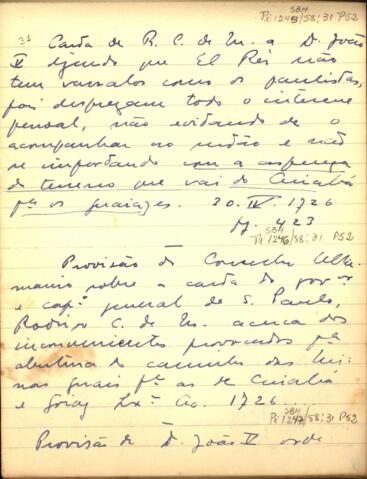 SBH
Pi 1245/58:31 P52
31 Carta de R. C. de M. a D. João
V dizendo que El Rei não
tem vassalos como os paulistas,
pois desprezam todo o interesse
pessoal, não evitando de o
acompanhar no sertão e não
se importando com a aspereza
do terreno que vai do Cuiabá
pª os Guaiazes. 30.IV.1726
423
SBH
Pi 1246/58:31 P52
Provisão do Conselho Ultra-
marino sobre a carta do govor
e capm general de S. Paulo,
Rodrigo C. de M. acerca dos
inconvenientes provocados pª
abertura do caminho das Mi-
nas Gerais pª as de Cuiabá
e Goiaz Lxª 1726
SBH
Pi 1247/58:31 P52
Provisão de D. João V